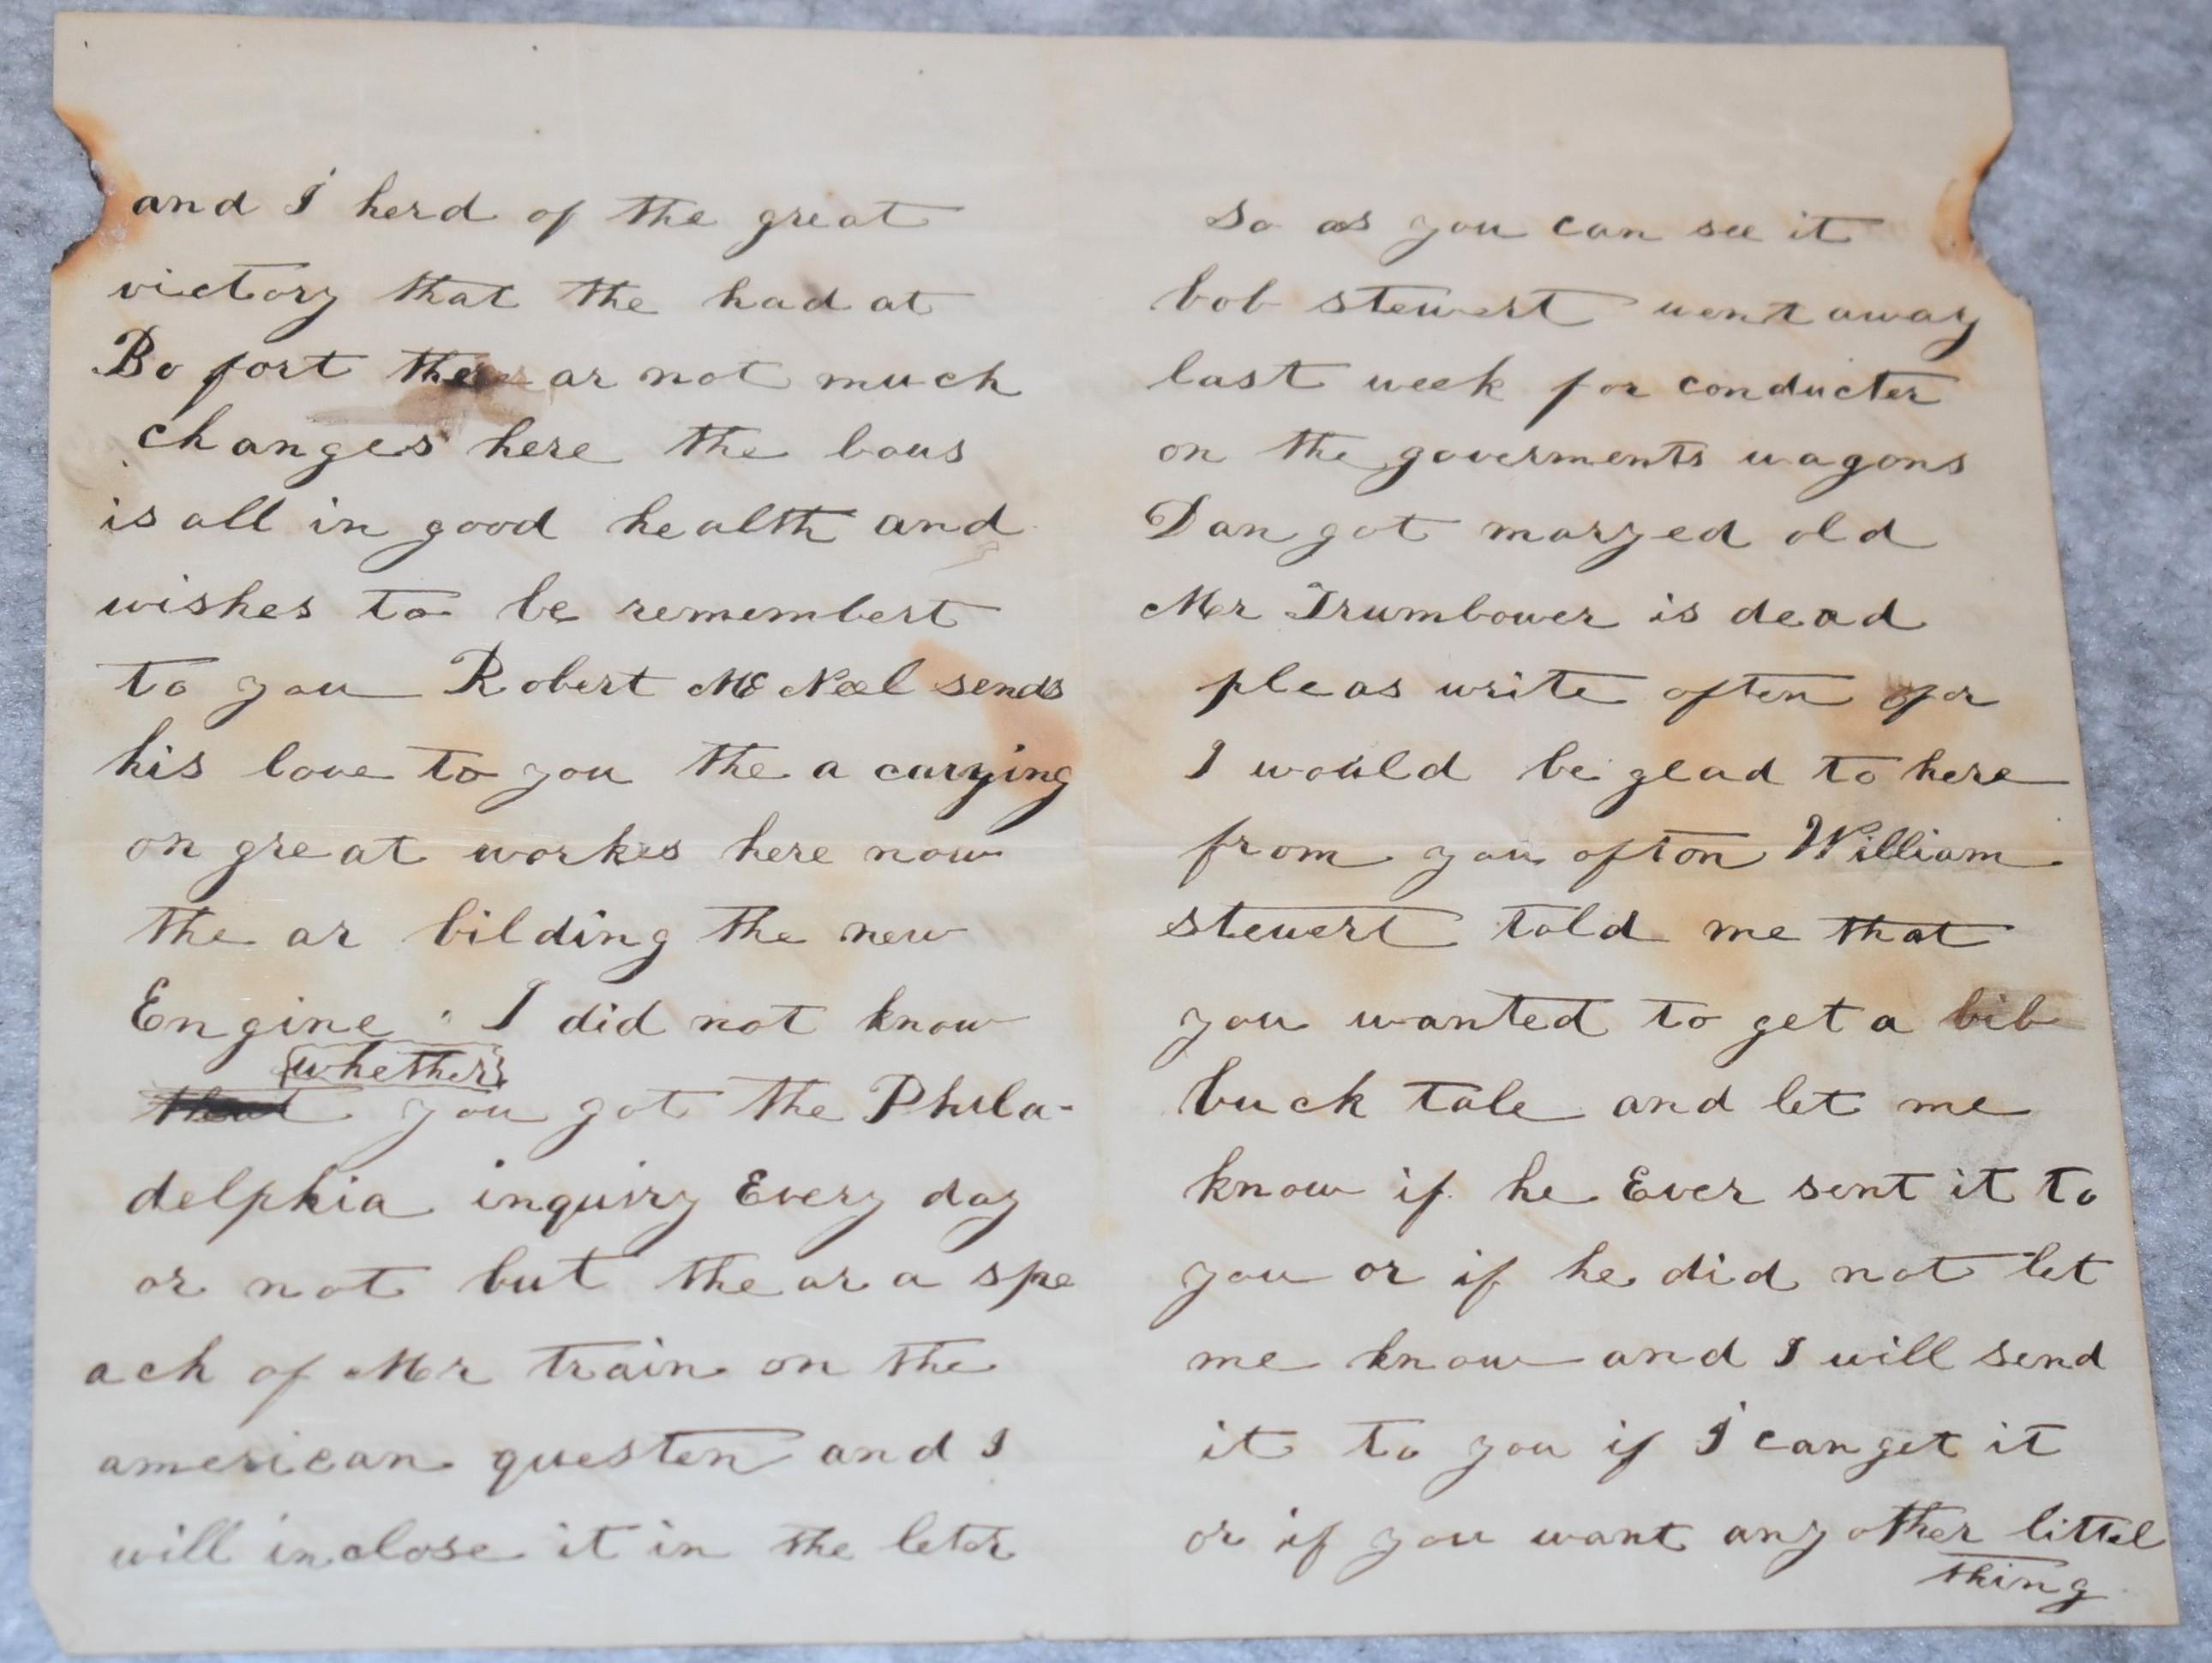 and I herd of the great
victory that the had at
Bo fort ther ar not much
changes here the bous
is all in good health and
wishes to be remembert
to you Robert Mc Neel sends
his love to you the a carying
on great workes here now
the ar bilding the new
Engine . I did not know
whether
that you got the Phila-
delphia inquiry Every day
or not but the ar a spe
ach of Mr train on the
american questen and I
will inclose it in the leter
so as you can see it
bob stewert went away
last week for conducter
on the goverments wagons
Dan got maryed old
Mr Trumbower is dead
pleas write often for
I would be glad to here
from you ofton William
stewert told me that
you wanted to get a bib
buck tale and let me
know if he Ever sent it to
you or if he did not let
me know and I will send
it to you if I can get it
or if you want any other littel
thing